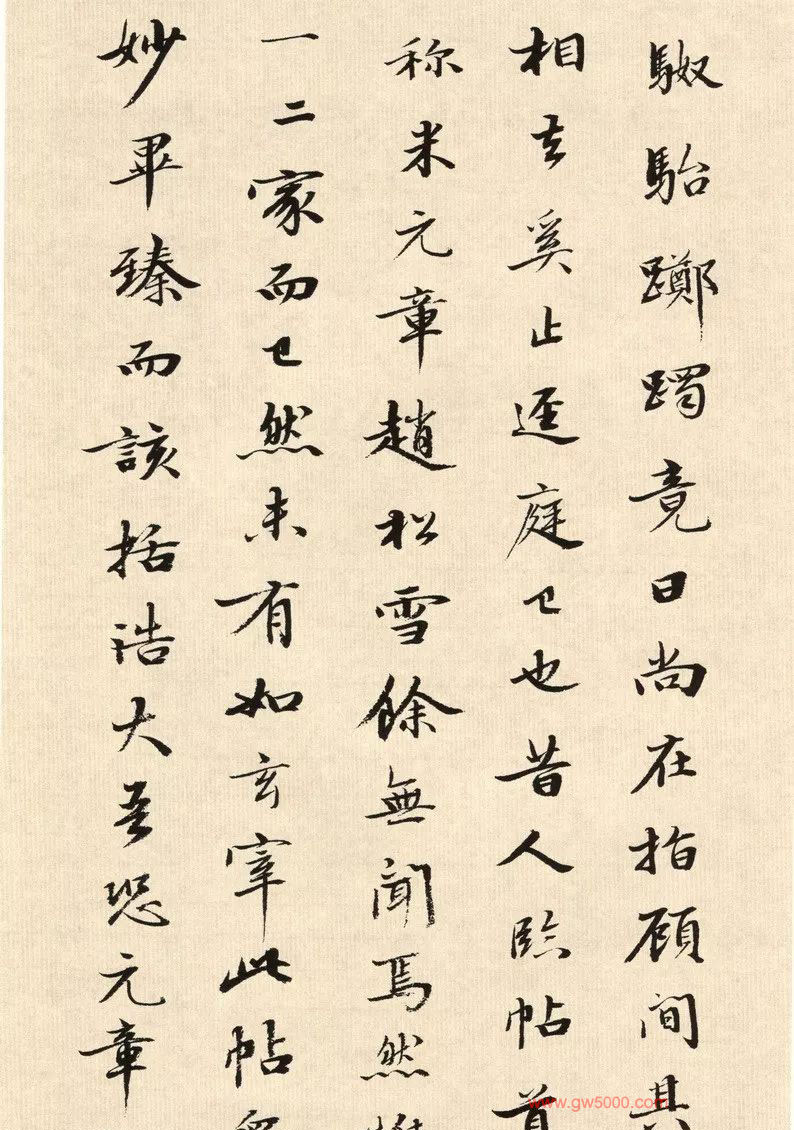 駑駘躑躅竟日尚在指顧间其
相去奚止逕庭已也昔人臨帖首
称米元章趙松雪餘無聞焉然
一二家而已然未有如玄宰此帖
妙畢臻而該括浩大吾恐元章
www.gw5000.com